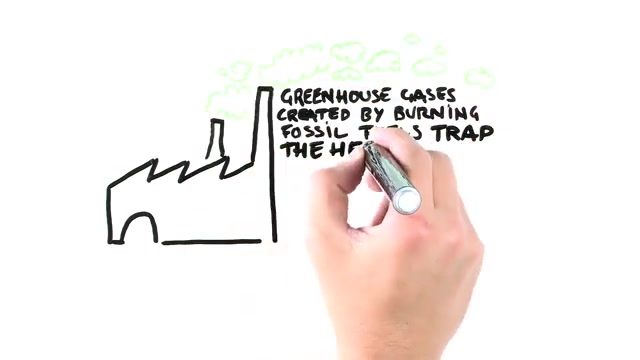 GREENHOUSE GASES
CREATED BY BURNING
FOSSIL TRAP
THE